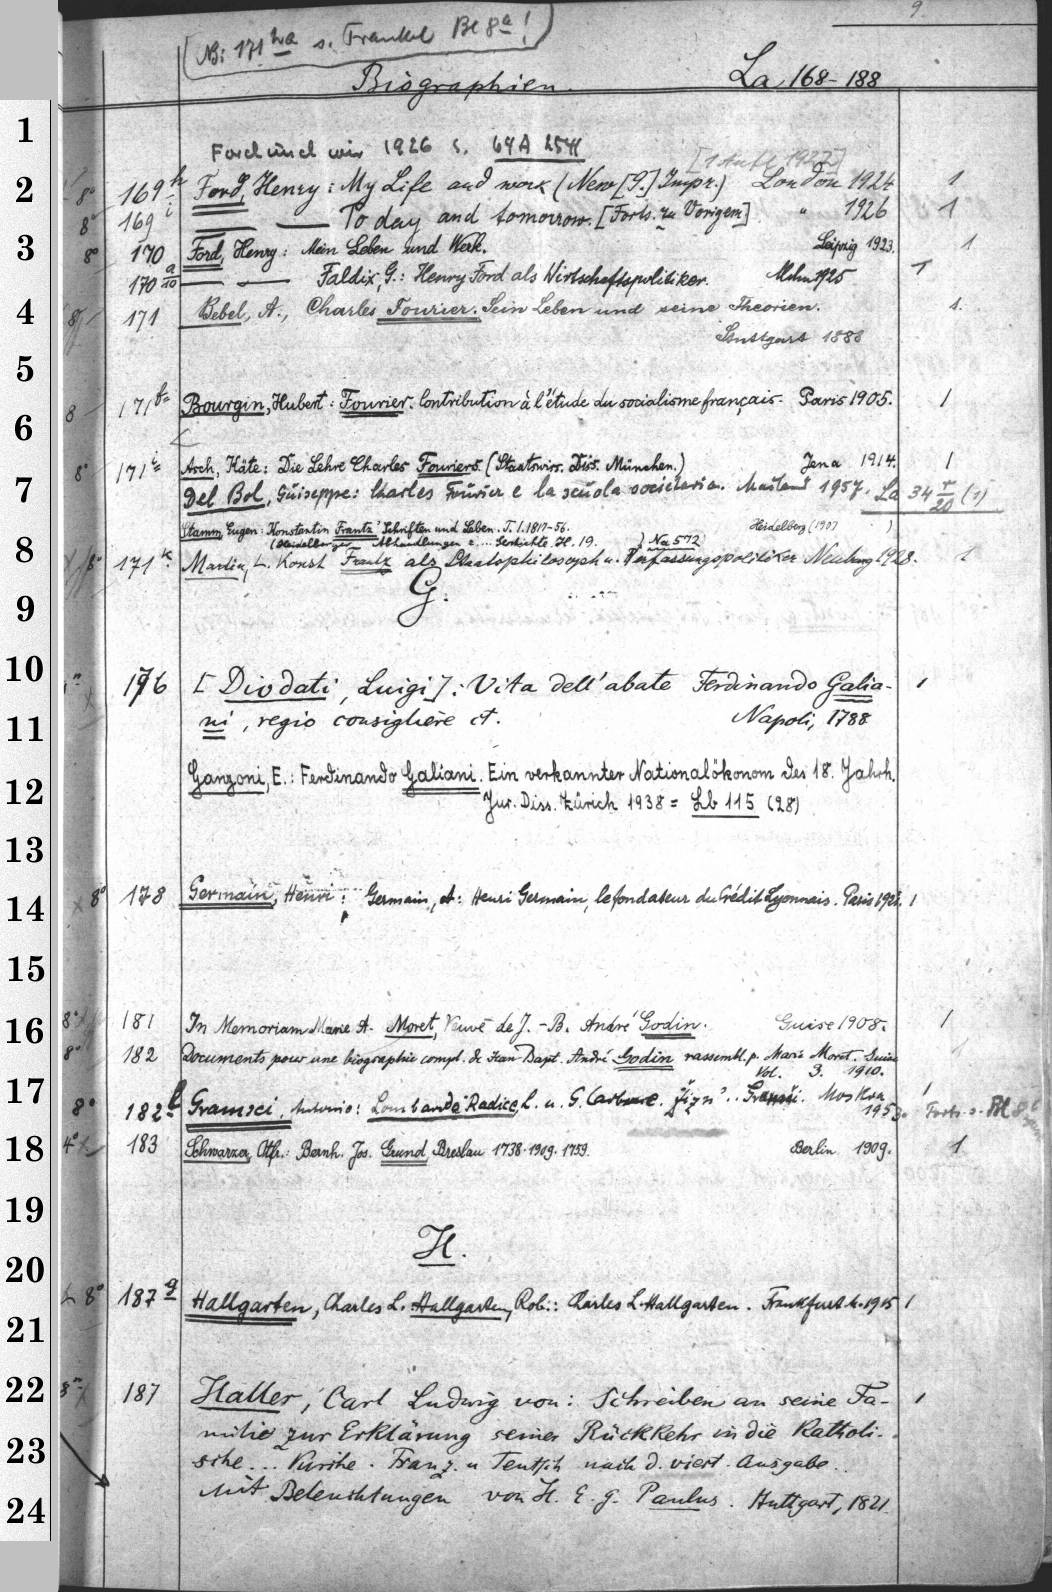 9.
[Bei 171 s. Frankel Bl 8a!]
Biographien. La 168-188
1
Ford und wir 1926 s. 64A 2541
[1 Aufl. 1922]
2 8° 169h Ford, Henry: My Life and work (New [9.] Impr.) London 1924 1
8° 169i — To day and tomorrow. [Forts. zu Vorigem] " 1926 1
3 8° 170 Ford, Henry: Mein Leben und Werk. Leipzig 1923. 1
170 a/10 — Faldix, G.: Henry Ford als Wirtschaftspolitiker. Mchn 1925 1
4 8° 171 Bebel, A., Charles Fourier. Sein Leben und seine Theorien. 1.
Stuttgart 1888
5
8 171 Bourgin, Hubert: Fourier. Contribution à l'étude du socialisme français. Paris 1905. 1
6
8° 171i Asch, Käte: Die Lehre Charles Fouriers. (Staatswiss. Diss. München.) Jena 1914. 1
7 Del Bol, Guiseppe: Charles Fourier e la scuola societaria. Mailand 1957. La 34 r/20 (1)
Stamm, Eugen: Konstantin Frantz' Schriften und Leben. T. 1. 1817-56. Heidelberg (1907 )
(Heidelberger Abhandlungen z. ... Geschichte. H. 19. ) Na 572
8 8° 171k Martin, L. Konst Frantz als Staatsphilosoph u. Verfassungspolitiker Neuburg 1928. 1
G.
9
10 176 [Diodati, Luigi]: Vita dell'abate Ferdinando Galia- 1
11 ni, regio consigliere ct. Napoli, 1788
Ganzoni, E.: Ferdinando Galiani. Ein verkannter Nationalökonom des 18. Jahrh.
12 Jur. Diss. Zürich 1938 = Lb 115 (28)
13
14 8° 178 Germain, Henri: Germain, A: Henri Germain, le fondateur du Crédit Lyonnais. Paris 1 1
15
16 8° 181 In Memoriam Marie A. Moret, Veuve de J.-B. André Godin. Guise 1908. 1
8° 182 Documents pour une biographie compl. de Jean-Bapt. André Godin rassembl. p. Marie Moret. Guise
Vol. 3. 1910.
17 8° 182 Gramsci, Antonio: Lombardo Radice, L. u. G. Carbone. Žizn' .. Gramši. Moskva 1 Forts. s. Bl 8
1953.
18 4° 183 Schwarzer, Otfr.: Bernh. Jos. Grund Breslau 1738-1909. 1759. Berlin 1909. 1
19
H.
20
8° 187g Hallgarten, Charles L. Hallgarten, Rob.: Charles L. Hallgarten. Frankfurt M. 1915 1
21
22 187 Haller, Carl Ludwig von: Schreiben an seine Fa- 1
23 milie zur Erklärung seiner Rückkehr in die Katholi-
sche... Kirche. Franz. u Teutsch nach d. viert. Ausgabe..
24 Mit Beleuchtungen von H. E. G. Paulus. Stuttgart, 1821.